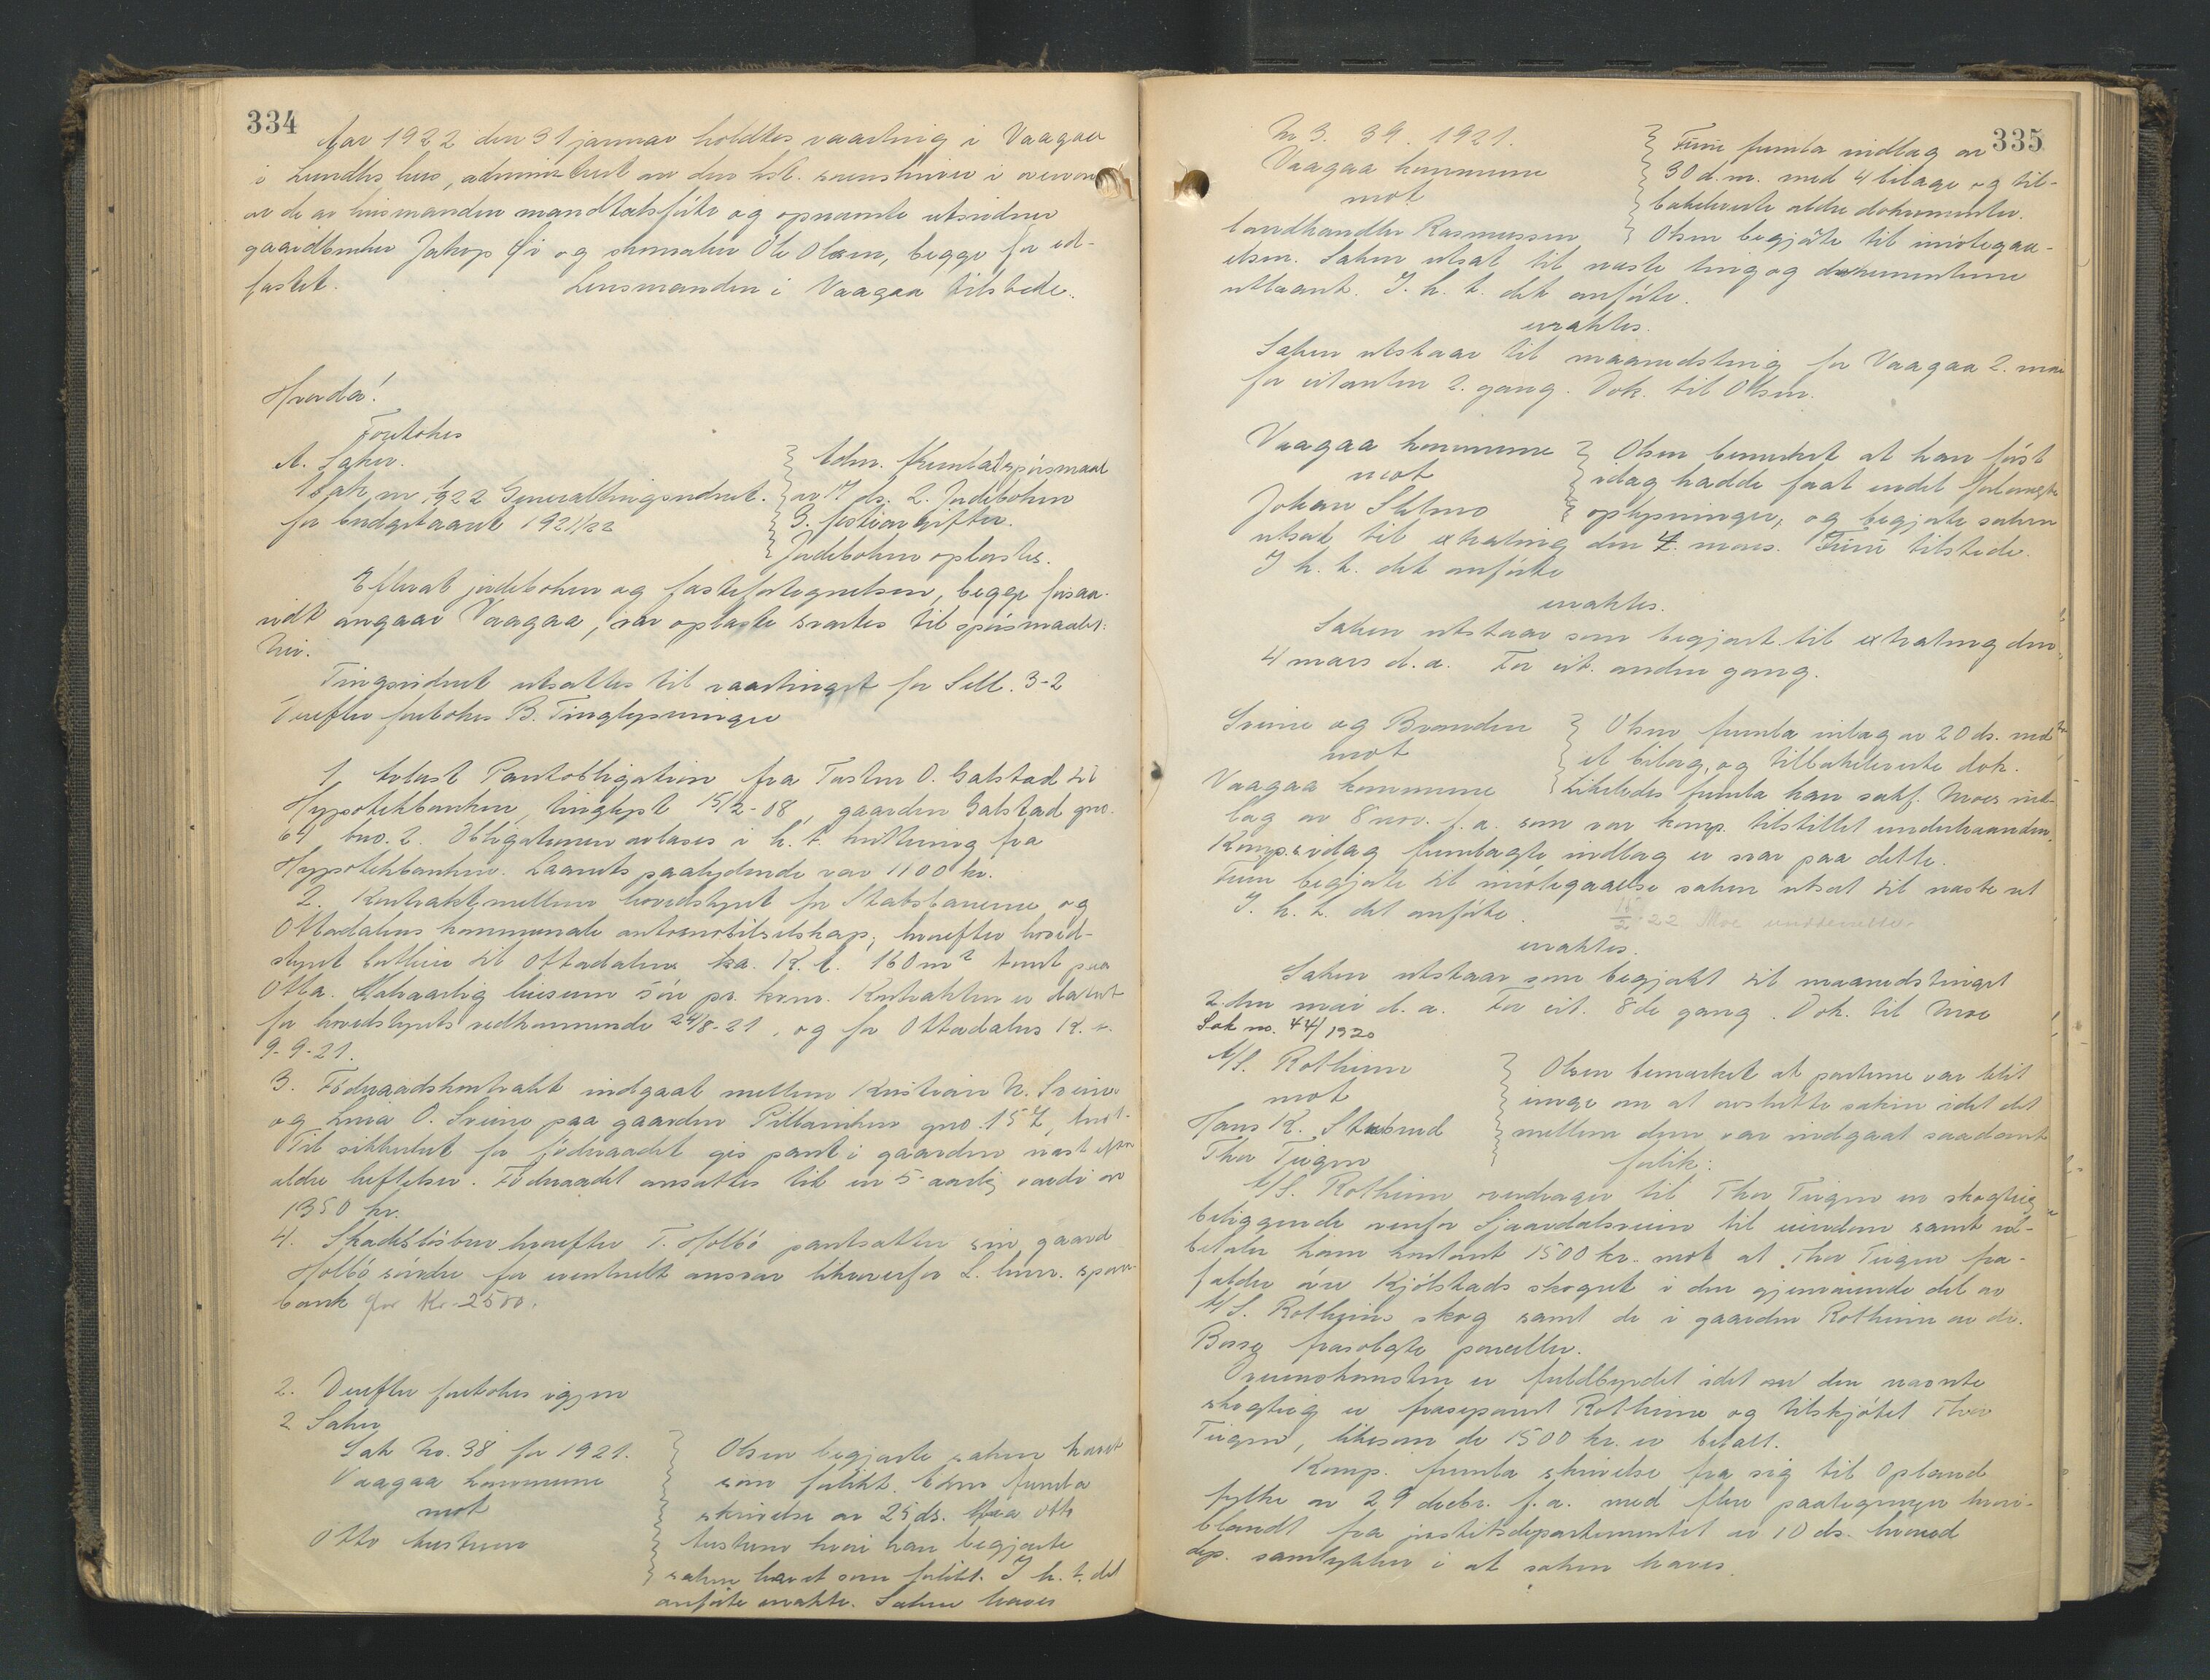 334
Aar 1922 den 31 januar holdtes vaarting i Vaagaa
i Lundes hus, administrert av den kst. sorenskriver i overvær
av de av lensmanden mandtalsførte og opnævnte vidner
gaardbruker Jakop Øi og skomaker Ole Olsen, begge før ed-
fæstet. Lensmanden i Vaagaa tilstede.
Hvorda!
Foretokes
A. Saker.
1 sak nr 1/1922 Generaltingsvidnet.
for budgetaaret 1921/22
Adm. fremla 1. spørsmaal
av 17 ds. 2. Jordeboken
3. festeavgifter.
Jordeboken oplæstes.
Efterat jordeboken og fastefortegnelsen, begge forsaa-
vidt angaar Vaagaa, var oplæste svartes til spørsmaalet:
Nei.
Tingsvidnet utsattes til vaartinget for Sell. 3-2
Derefter foretokes B. Tinglysninger
1. Avlæst Pantobligation fra Torsten O. Galstad til
Hypotekbanken, tinglyst 15/2-08, gaarden Galstad gno.
64 bno. 2. Obligationen avlæses i h. t. kvittering fra
Hypotekbanken. Laanets paalydende var 1100 kr.
2. Kontrakt mellem hovedstyret for Statsbanerne og
Ottadalens kommunale automobilselskap, hvorefter hoved-
styret bortleier til Ottadalens ka. K. l. 160 m² tomt paa
Otta. Halvaarlig leiesum 5 øre pr. kvm. Kontrakten er datert
for hovedstyrets vedkommende 24/8-21, og for Ottadalens K. s.
9-9-21.
3. Føderaadskontrakt indgaat mellem Kristian N. Sveine
og Livia O. Sveine paa gaarden Pillarviken gno. 157, bno 1-
Til sikkerhet for føderaadet gis pant i gaarden næst efter
ældre heftelser. Føderaadet ansættes til en 5-aarlig værdi av
1350 kr.
4. Skadesløsbrev hvorefter T. Holbø pantsætter sin gaard
Holbø søndre for eventuelt ansvar likeoverfor L. kom. spare-
bank for Kr. 2500.
2. Derefter foretokes igjen
2 Saker
Sak No. 38 for 1921.
Vaagaa kommune
mot
Otto Austeen
Olsen begjærte saken hævet
som forlikt. Adm. fremla
skrivelse av 25 ds. fra Otto
Austeen hvori han begjærte
saken hævet som forlikt. I h. t. det
anførte eragtes. Saken hæves
335
Nr 3. 39. 1921.
Vaagaa kommune
mot
landhandler Rasmussen
Fürü fremla indlæg av
30 d. m. med 4 bilage og til-
bakeleverte ældre dokumenter.
Olsen begjærte til imøtegaa-
elsen. Saken utsat til næste ting og dokumenterne
utlaant. I. h. t. det anførte.
eragtes.
Saken utstaar til maanedsting for Vaagaa 2. mai
for citanten 2. gang. Dok. til Olsen.
Vaagaa kommune
mot
Johan Sletmo
Olsen bemerket at han først
idag hadde faat endel forlangte
oplysninger, og begjærte saken
utsat til extrating den 4. mars. Fürü tilstede.
I h. t. det anførte
eragtes.
Saken utstaar som begjært til extrating den
4 mars d. a. For cit. anden gang.
Sveine og Branden
mot
Vaagaa kommune
Olsen fremla inlæg av 20 ds. med
et bilag, og tilbakeleverte dok.
Likeledes fremla han sakf. Moes ind-
læg av 8 nov. f. a. som var komp. tilstillet underhaanden.
Komp.s idag fremlagte indlæg er svar paa dette.
Fürü begjærte til imøtegaaelse saken utsat til næste ut
I. h. t. det anførte. 15/2-22 Moe underrettet.
eragtes.
Saken utstaar som begjært til maanedstinget
2. den mai d. a. For cit. 8de gang. Dok. til Moe
Sak no. 44/1920
A/S. Rotheim
mot
Hans K. Stabrud
Thor Teigen
Olsen bemerket at parterne var blit
enige om at avslutte saken idet det
mellem dem var indgaat saadant
forlik:
A/S. Rotheim overdrager til Thor Teigen en skogteig
beliggende ovenfor Sjaardalsveien til eiendom samt ut-
betaler ham kontant 1500 kr. mot at Thor Teigen fra-
falder øvre Kjølstads skogret i den gjenværende del av
A/S. Rotheims skog samt de i gaarden Rotheim av de.
Borse frasolgte parceller.
Overenskomsten er fuldbyrdet idet saa den nævnte
skogteig er fraseparert Rotheim og tilskjøtet Thor
Teigen, likesom de 1500 kr. er betalt.
Komp. fremla skrivelse fra sig til Opland
fylke av 29 decbr. f. a. med flere paategninger hvori-
blandt fra justitsdepartementet av 10 ds. hvorved
dep. samtykker i at saken hæves.